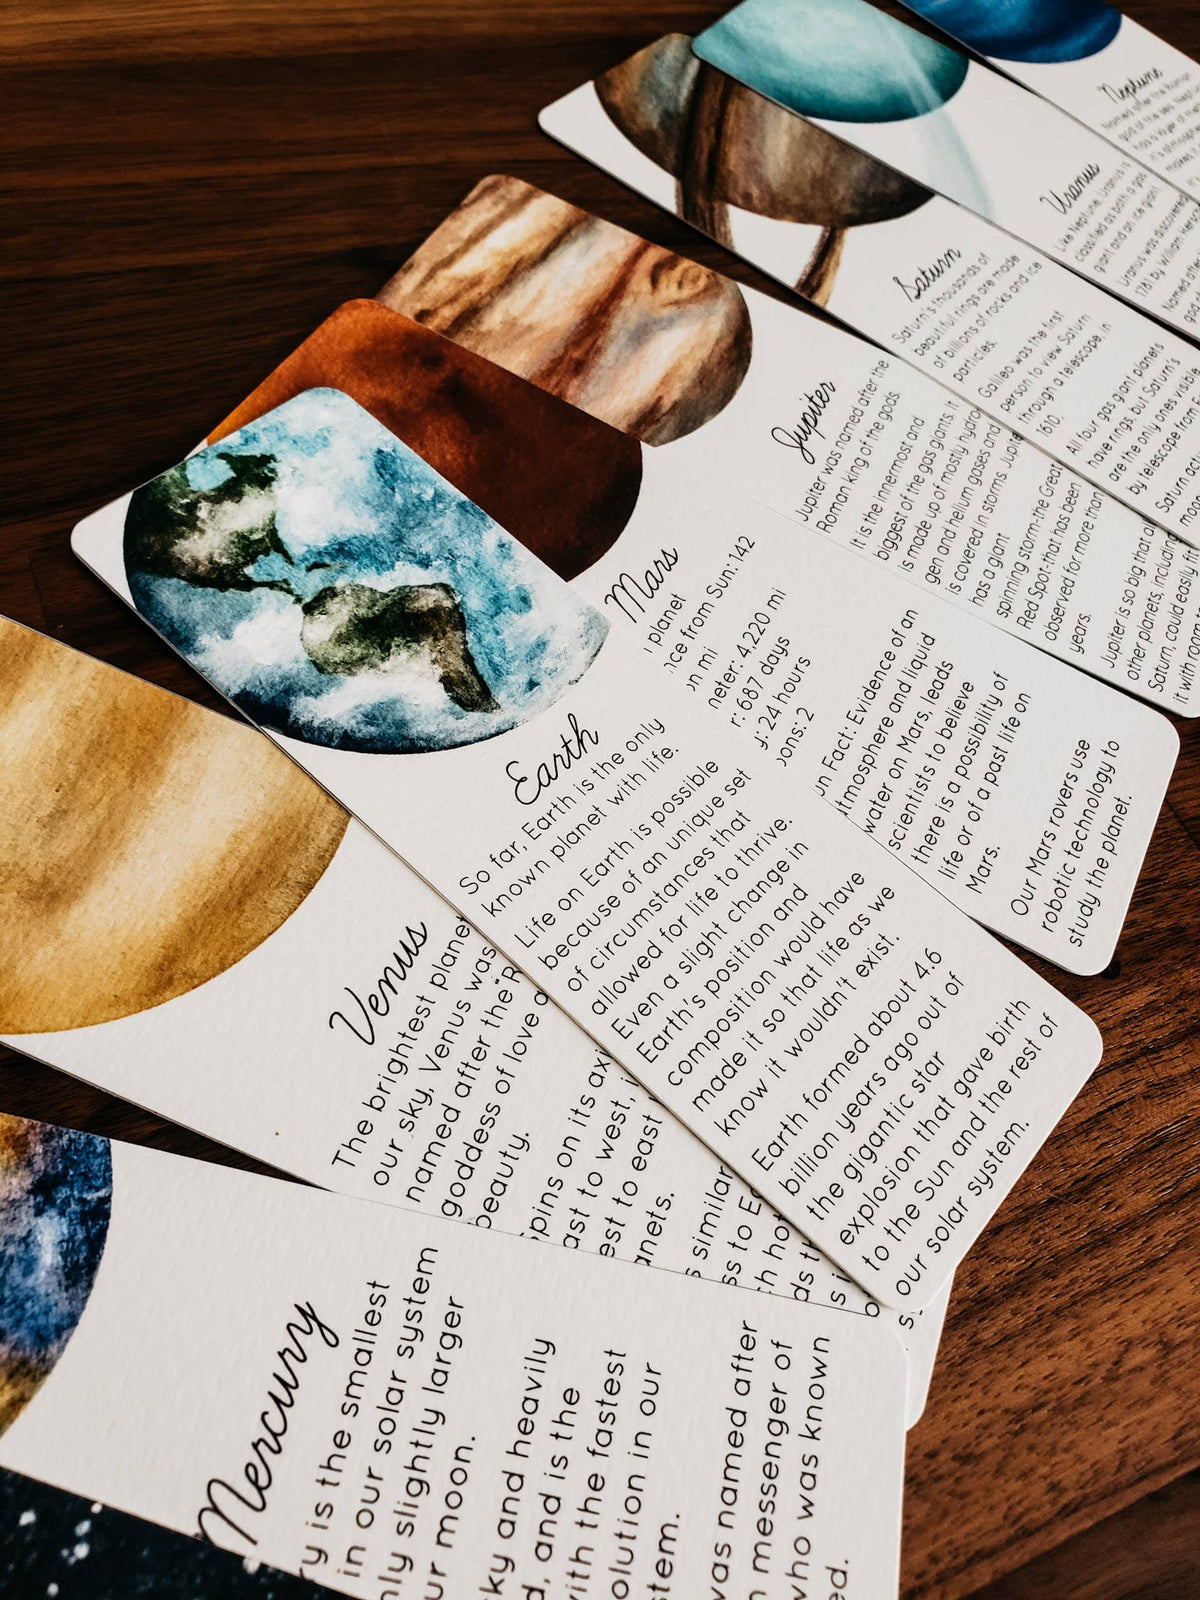 Neptune
Named after the Roman
god of the sea, Neptune
has a layer of
Uranus
Like Neptune, Uranus is
classified as both a gas
giant and an ice giant.
Uranus was discovered
1781 by William
Named after
god
Saturn
Saturn's thousands of
beautiful rings are made
of billions of rocks and ice
particles.
Galileo was the first
person to view Saturn
through a telescope, in
1610.
All four gas giant planets
have rings, but Saturn's
are the only ones visible
by telescope from
Jupiter
Jupiter was named after the
Roman king of the gods
It is the innermost and
biggest of the gas giants. It
is made up of mostly hydro
gen and helium gases and
is covered in storms. Jupite
has a giant
spinning storm-the Great
Red Spot-that has been
observed for more than
years.
Jupiter is so big that a
other planets, including
Saturn, could easily fit
it with room
Mars
planet
ce from Sun: 142
on mi
neter: 4,220 mi
r: 687 days
y: 24 hours
ons: 2
n Fact: Evidence of an
atmosphere and liquid
water on Mars, leads
scientists to believe
there is a possibility of
life or of a past life on
Mars.
Our Mars rovers use
robotic technology to
study the planet.
Earth
So far, Earth is the only
known planet with life.
Life on Earth is possible
because of an unique set
of circumstances that
allowed for life to thrive.
Even a slight change in
Earth's position and
composition would have
made it so that life as we
know it wouldn't exist.
Earth formed about 4.6
billion years ago out of
the gigantic star
explosion that gave birth
to the Sun and the rest of
our solar system.
Venus
The brightest planet
our sky, Venus was
named after the R
goddess of love a
beauty.
Spins on its axi
ast to west, i
est to east
anets.
s similar
ss to Ea
ch hot
ds th
s i
Mercury
ry is the smallest
in our solar system
nly slightly larger
ur moon.
ky and heavily
d, and is the
with the fastest
olution in our
stem.
was named after
n messenger of
who was known
ed.